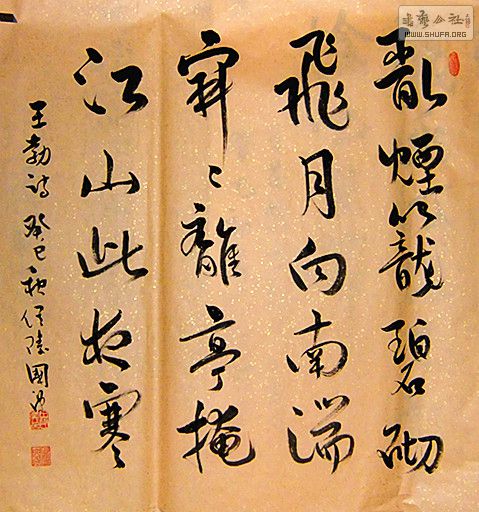 亂煙籠碧砌
飛月向南端
寂〻離亭掩
江山此夜寒
王勃詩 癸巳秋 國
書藝公社
WWW.SHUFA.ORG